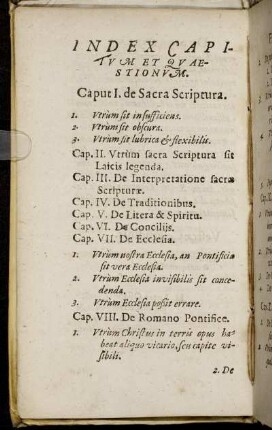 INDEX CAPI-
TVM ET QVAE-
STIONVM.
Caput I. de Sacra Scriptura.
1. Vtrùm sit insufficiens.
2. Vtrùm sit obscura.
3. Vtrùm sit lubrica & flexibilis.
Cap. II. Vtrùm sacra Scriptura sit
Laicis legenda.
Cap. III. De Interpretatione sacræ
Scripturæ.
Cap. IV. De Traditionibus.
Cap. V. De Litera & Spiritu.
Cap. VI. De Concilijs.
Cap. VII. De Ecclesia.
1. Vtrùm nostra Ecclesia, an Pontificia
sit vera Ecclesia.
2. Vtrùm Ecclesia invisibilis sit conce-
denda.
3. Vtrùm Ecclesia possit errare.
Cap. VIII. De Romano Pontifice.
1. Vtrùm Christus in terris opus ha-
beat aliquo vicario, seu capite vi-
sibili.
2. De